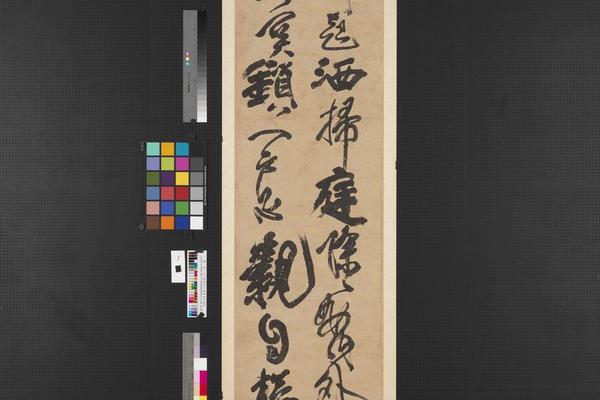 起洒掃庭除外
鎖門戶必親自檢